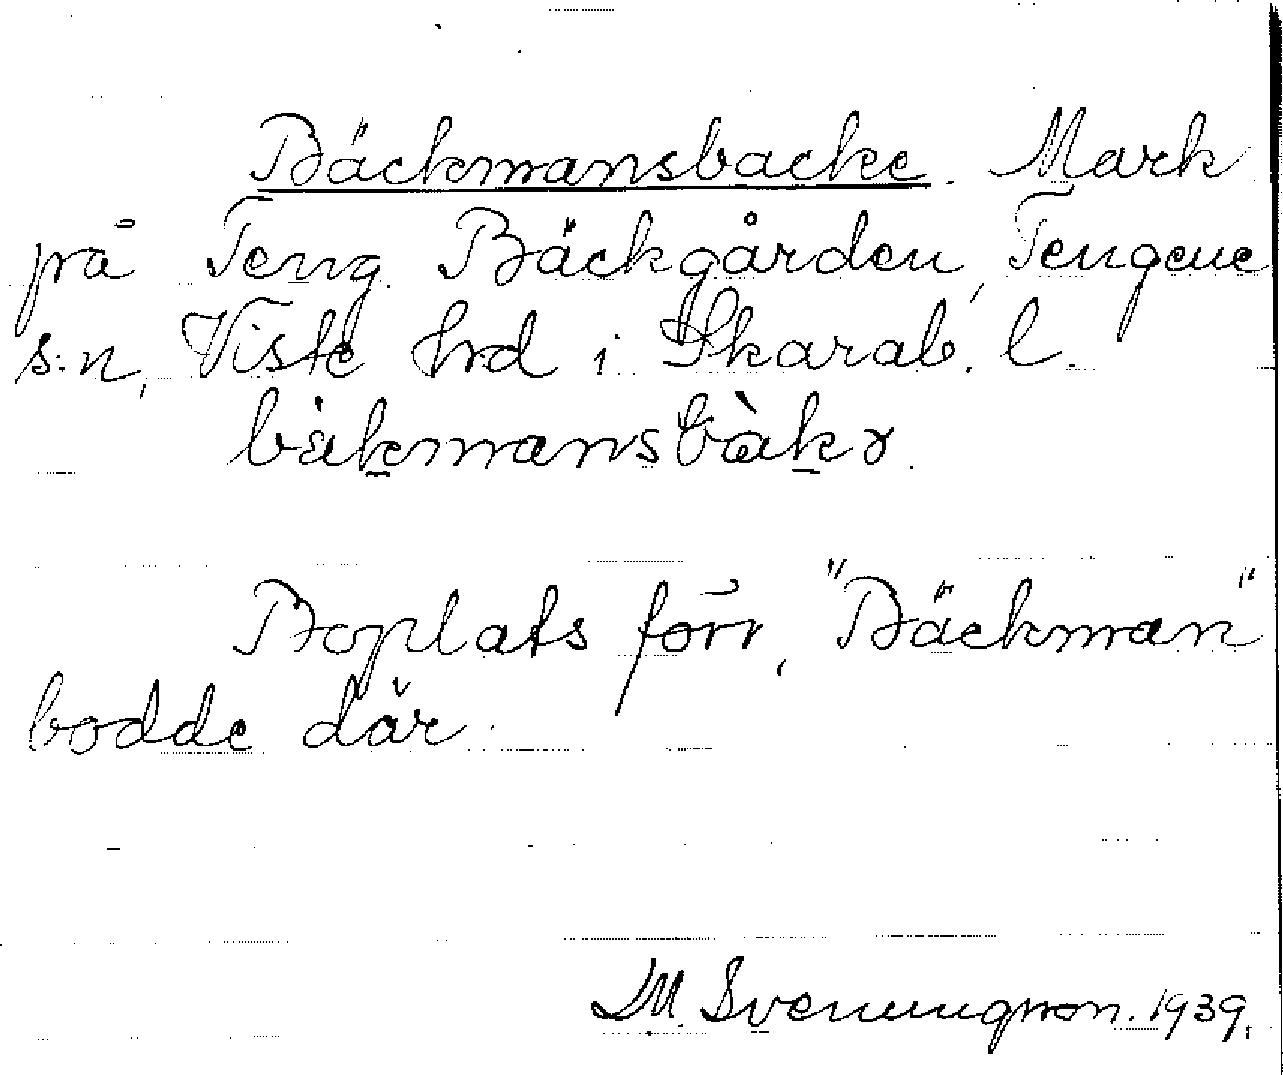 Bäckmansbacke. Mark
på Teng. Bäckgården, Tengene
s:n, Viste hrd i Skarab. l.
Boplats förr, "Bäckman"
bodde där.
DM. Svenungsson. 1939.